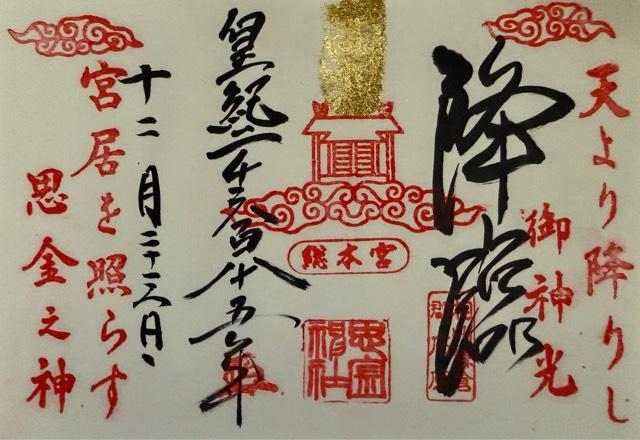 天より降りし
御神光
降臨
総本宮
思金神社
皇紀二千六百八十五年
十二月二十六日
宮居を照らす
思金之神